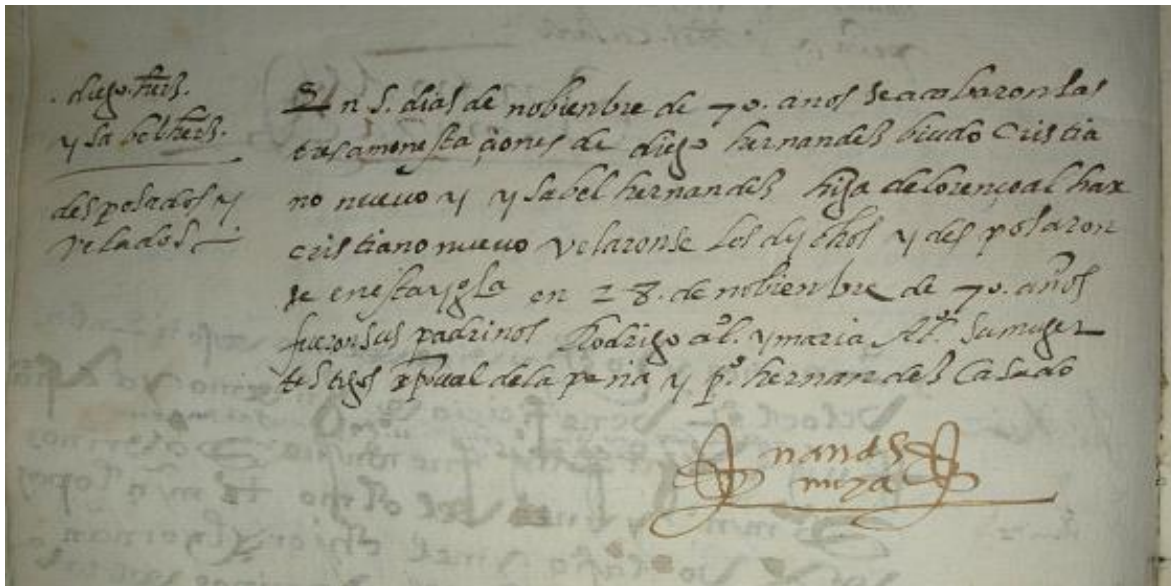 diego hrs.
y sabel hrs.
desposados y
velados
En 5. dias de nobienbre de 70. anos se acabaron las
tres amonestaçiones de diego hernandes biudo cristia
no nuevo y ysabel hernandes hija de lorenço al hax
cristiano nuevo velaronse los dychos y desposaron
se en esta ygla en 28. de nobienbre de 70. años
fueron sus padrinos Rodrigo al. y maria su muger
testigos xpoual de la peña y po hernandes Casado